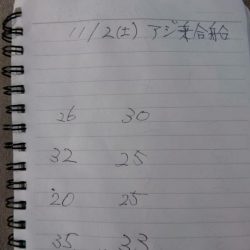 11/2(土) アジ乗合船
26 30
32 25
20 25
35 33